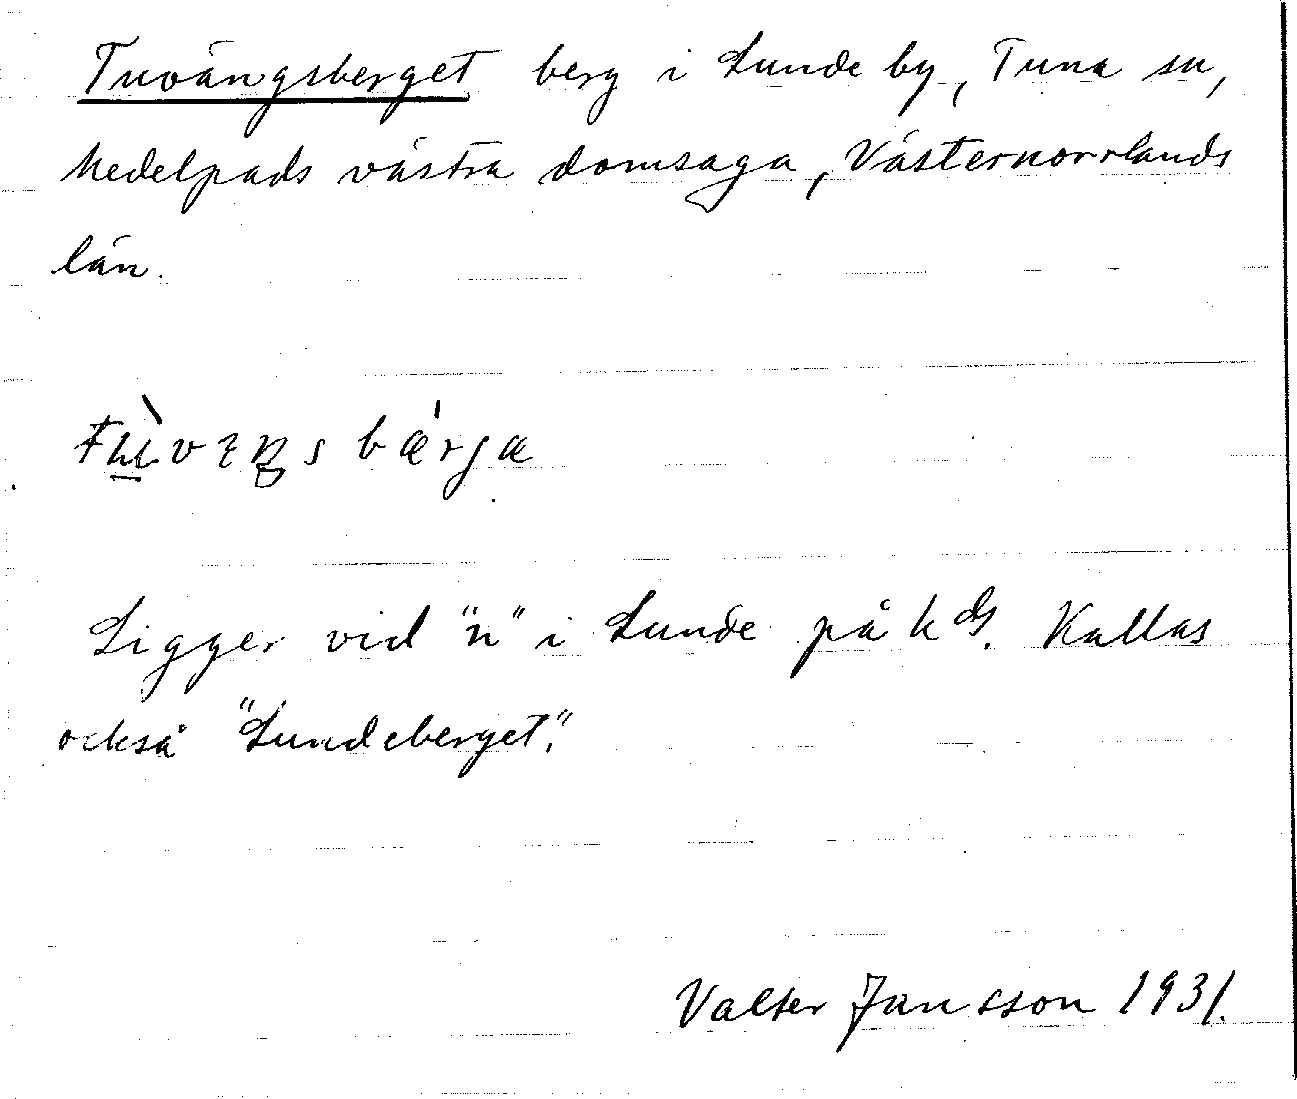 Tuvängsberget berg i Lunde by, Tuna sn,
Medelpads västra domsaga, Västernorrlands
län.
Ligger vid "n" i Lunde på kds. Kallas
också "Lundeberget."
Valter Jansson 1931.